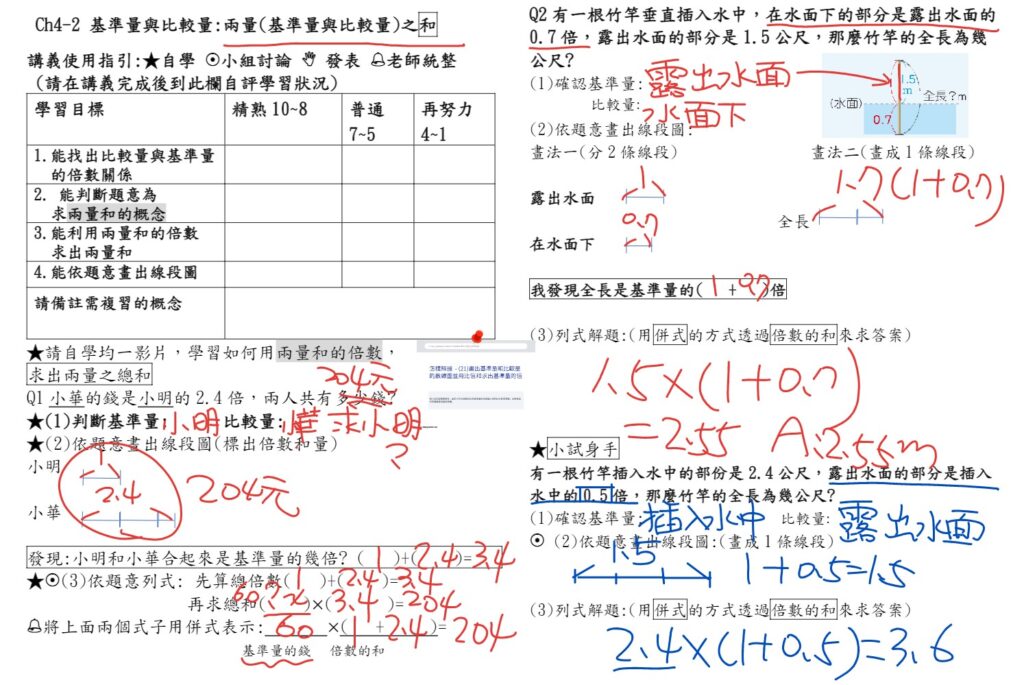 Ch4-2 基準量與比較量:兩量(基準量與比較量)之和
講義使用指引:★自學 ⊙小組討論 發表 老師統整
(請在講義完成後到此欄自評學習狀況)
學習目標 精熟 10~8 普通 7~5 再努力 4~1
1.能找出比較量與基準量
的倍數關係
2. 能判斷題意為
求兩量和的概念
3.能利用兩量和的倍數
求出兩量和
4.能依題意畫出線段圖
請備註需複習的概念
★請自學均一影片，學習如何用兩量和的倍數，
求出兩量之總和
204元
Q1 小華的錢是小明的 2.4 倍，兩人共有多少錢?
★(1)判斷基準量:小明 比較量:華 求小明?
★(2)依題意畫出線段圖(標出倍數和量)
小明 1
2.4 204元
小華
發現:小明和小華合起來是基準量的幾倍? ( 1 )+(2.4)=3.4
★⊙(3)依題意列式: 先算總倍數( 1 )+(2.4)=3.4
再求總和( 60 )×(3.4)=204
將上面兩個式子用併式表示: 60 ×( 1 + 2.4)= 204
基準量的錢 倍數的和
Q2 有一根竹竿垂直插入水中，在水面下的部分是露出水面的
0.7 倍，露出水面的部分是 1.5 公尺，那麼竹竿的全長為幾
公尺?
(1)確認基準量:露出水面
比較量:水面下
1.5 m
(水面) 全長?m
0.7
(2)依題意畫出線段圖:
畫法一(分 2 條線段) 畫法二(畫成 1 條線段)
1 1.7(1+0.7)
露出水面
0.7 全長
在水面下
我發現全長是基準量的( 1 + 0.7 )倍
(3)列式解題:(用併式的方式透過倍數的和來求答案)
1.5×(1+0.7)
=2.55 A:2.55m
★小試身手
有一根竹竿插入水中的部份是 2.4 公尺，露出水面的部分是插入
水中的 0.5 倍，那麼竹竿的全長為幾公尺?
(1)確認基準量:插入水中 比較量:露出水面
⊙ (2)依題意畫出線段圖:(畫成 1 條線段)
1.5 1+0.5=1.5
(3)列式解題:(用併式的方式透過倍數的和來求答案)
2.4×(1+0.5)=3.6